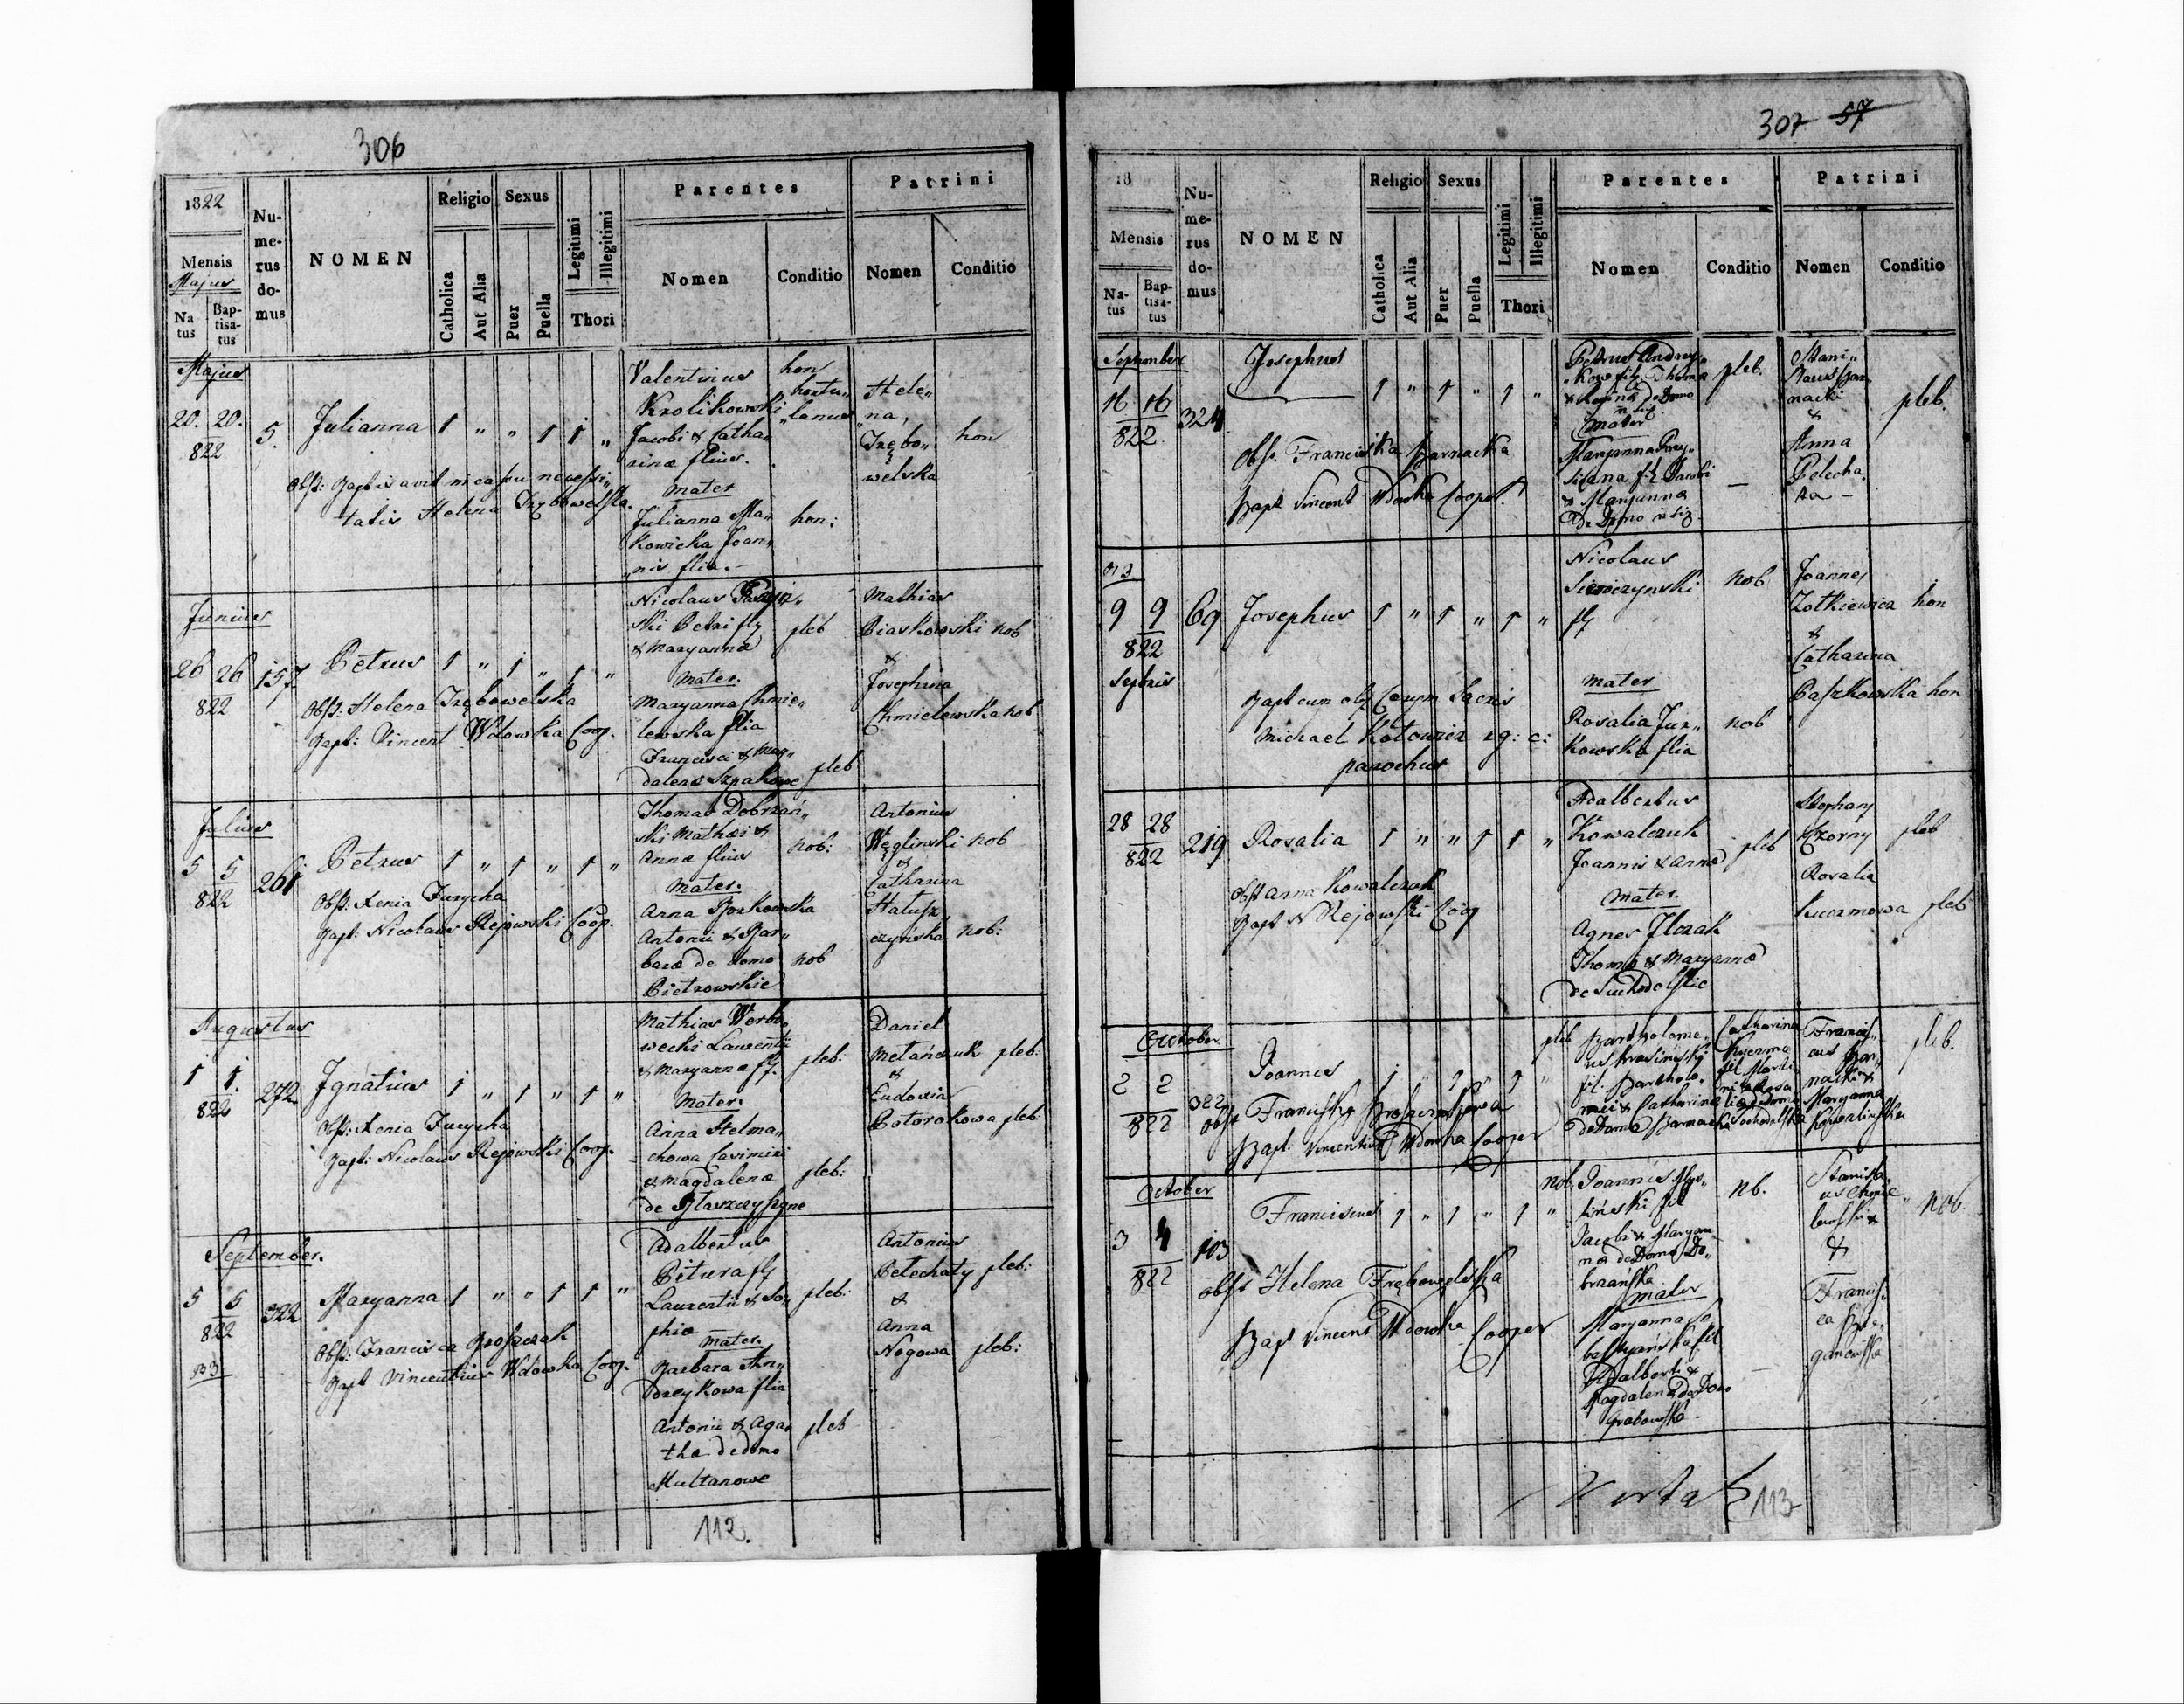 306
1822
Mensis
Majus
Na
tus
Bap-
tisa-
tus
Nu-
me-
rus
do-
mus
NOMEN
Religio
Catholica
Aut Alia
Sexus
Puer
Puella
Legitimi
Illegitimi
Thori
Parentes
Nomen
Conditio
Patrini
Nomen
Conditio
Majus
20. 20.
822
5.
Julianna 1 " " 1 1 "
Obst: Baptisavit in casu necessi„
tatis Helena Trębowelska.
Valentinus
Krolikowski
Jacobi & Catha„
rinæ filius.
Mater
Julianna Ma„
kowicka Joan„
„nis flia.
hon
hortu„
„lanus
hon:
Hele„
na,
Trębo„
welska
hon
Junius
26 26
822
157
Petrus 1 " 1 " 1 "
Obst: Helena Trębowelska
Bapt: Vincent Wdowka Coop.
Nicolaus
ski Petri fly
& Maryanna
Mater.
Maryanna Chmie„
lewska flia
Francisci & Mag„
dalena
pleb
pleb
Mathias
Piaskowski nob
&
Josephina
Chmielewska nob
Julius
5 5
822
261
Petrus 1 " 1 " 1 "
Obst: Xenia Juzycha
Bapt: Nicolaus Rejowski Coop.
Thomas Dobrzań„
ski Mathæi &
Annæ filius
Mater.
Anna Borkowska
Antonii & Bar„
baræ de domo
Pietrowskie
nob:
nob
Antonius
Węglinski nob
&
Catharina
Halusz„
czyńska nob:
Augustus
1 1.
822
272.
Ignatius 1 " 1 " 1 "
Obst: Xenia Juzycha
Bapt: Nicolaus Rejowski Coop.
Mathias Werbo„
wecki Laurentii
& Maryanna fly.
Mater.
Anna Stelma„
chowa Casimiri
& Magdalenæ
de
pleb:
pleb:
Daniel
Melańczuk pleb:
&
Eudoxia
Potorokowa pleb:
September.
5 5
822
322
Maryanna 1 " " 1 1 "
Obst: Francisca Broszczak
Bapt Vincentius Wdowka Coop.
Adalbertus
Pitura fly
Laurentii & So„
phia
Mater.
Barbara An„
dreykowa flia
Antonii & Aga„
tha de domo
Multanowe
pleb:
pleb
Antonius
Pelechaty pleb:
&
Anna
Nogowa pleb:
112.
307 57
18
Mensis
Na-
tus
Bap-
tisa-
tus
Nu-
me-
rus
do-
mus
NOMEN
Religio
Catholica
Aut Alia
Sexus
Puer
Puella
Legitimi
Illegitimi
Thori
Parentes
Nomen
Conditio
Patrini
Nomen
Conditio
September
16 16
822
324
Josephus 1 " 1 " 1 "
Obst. Franciska Barnacka
Bapt Vincent Wdowka Coop.
Petrus Andrey„
Thoma
& Regina de Domo
Mater
Maryanna
Jacobi
& Maryanna
pleb.
—
Stani„
slaus Bar„
nacki
&
Anna
Pelecha
pleb.
9 9
822
Septris
69
Josephus 1 " 1 " 1 "
Bapt cum
Michael Kotowicz
parochus
Nicolaus
Siemczynski
fly
Mater
Rosalia Jur„
kowska flia
nob
nob
Joannes
Zotkiewicz hon
&
Catharina
Paszkowska hon
28 28
822
219
Rosalia 1 " " 1 1 "
Obst Anna Kowalczuk
Bapt N Rejowski Coop
Adalbertus
Kowalczuk
Joannis & Anna
Mater.
Agnes
Thoma & Maryanna
de
pleb
Stephany
Czorny pleb
Rosalia
Kuczmowa pleb
October.
2 2
822
322
Joannes 1 " 1 " 1 "
obst Franciska
Bapt. Vincentius Wdowka Cooper
pleb
Bartholome„
us Krasinski
fil. Bartholo„
mei & Catharina
de Domo Barnacka
Catharina
Kuczma
fil Marti
ni & Rosa
lia de Domo
Francis„
cus Bar„
nacki &
Maryanna
pleb.
October
3 4
822
103
Franciscus 1 " 1 " 1 "
obst Helena Trębowelska
Bapt Vincent Wdowka Cooper
nob. Joannes Mys„
liński fil
Jacobi & Maryan„
na de Domo Do„
brzańska
Mater
Maryanna
fil
Adalberti &
Magdalena de Domo
Grabowska
nb.
Stanisla„
us Chmie„
lewski &
&
Francis„
ca
nob.
113